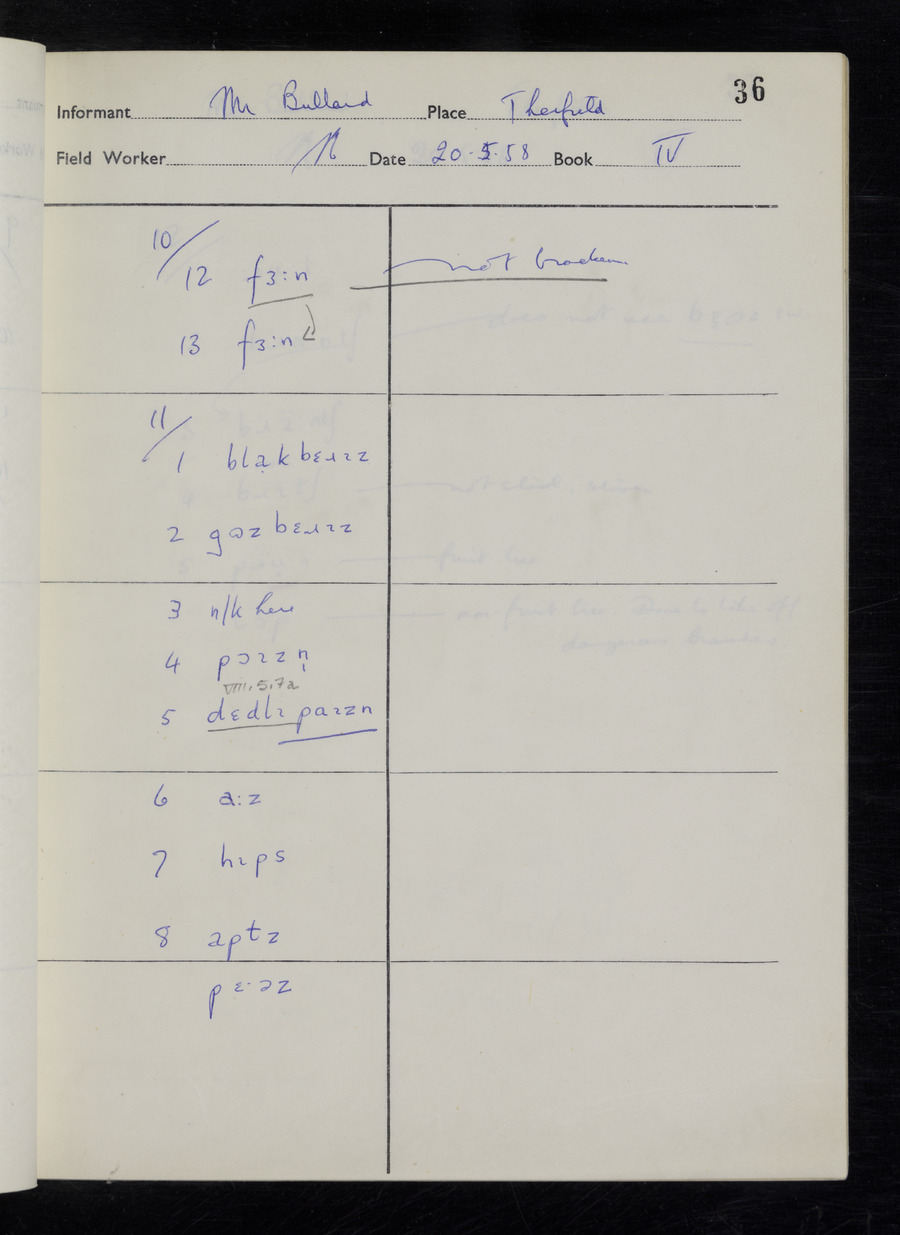 36
Informant Mr Bullard Place Therfield
Field Worker Date 20.5.58 Book IV
10/
12 fɜ:n not bracken
13 fɜ:n
11/
1 blakbɛɹɪz
2 gʊzbɛɹɪz
3 n/k here
4 pɔɪzn̩
VIII.5.7a
5 dɛdlɪ paɪzn
6 a:z
7 hɪps
8 aptz
pɛ·əz